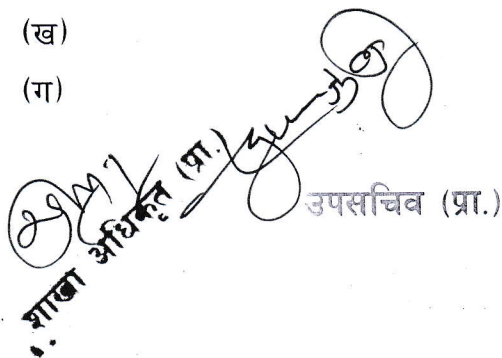 (ख)
(ग)
शाखा अधिकृत (प्रा.)
उपसचिव (प्रा.)